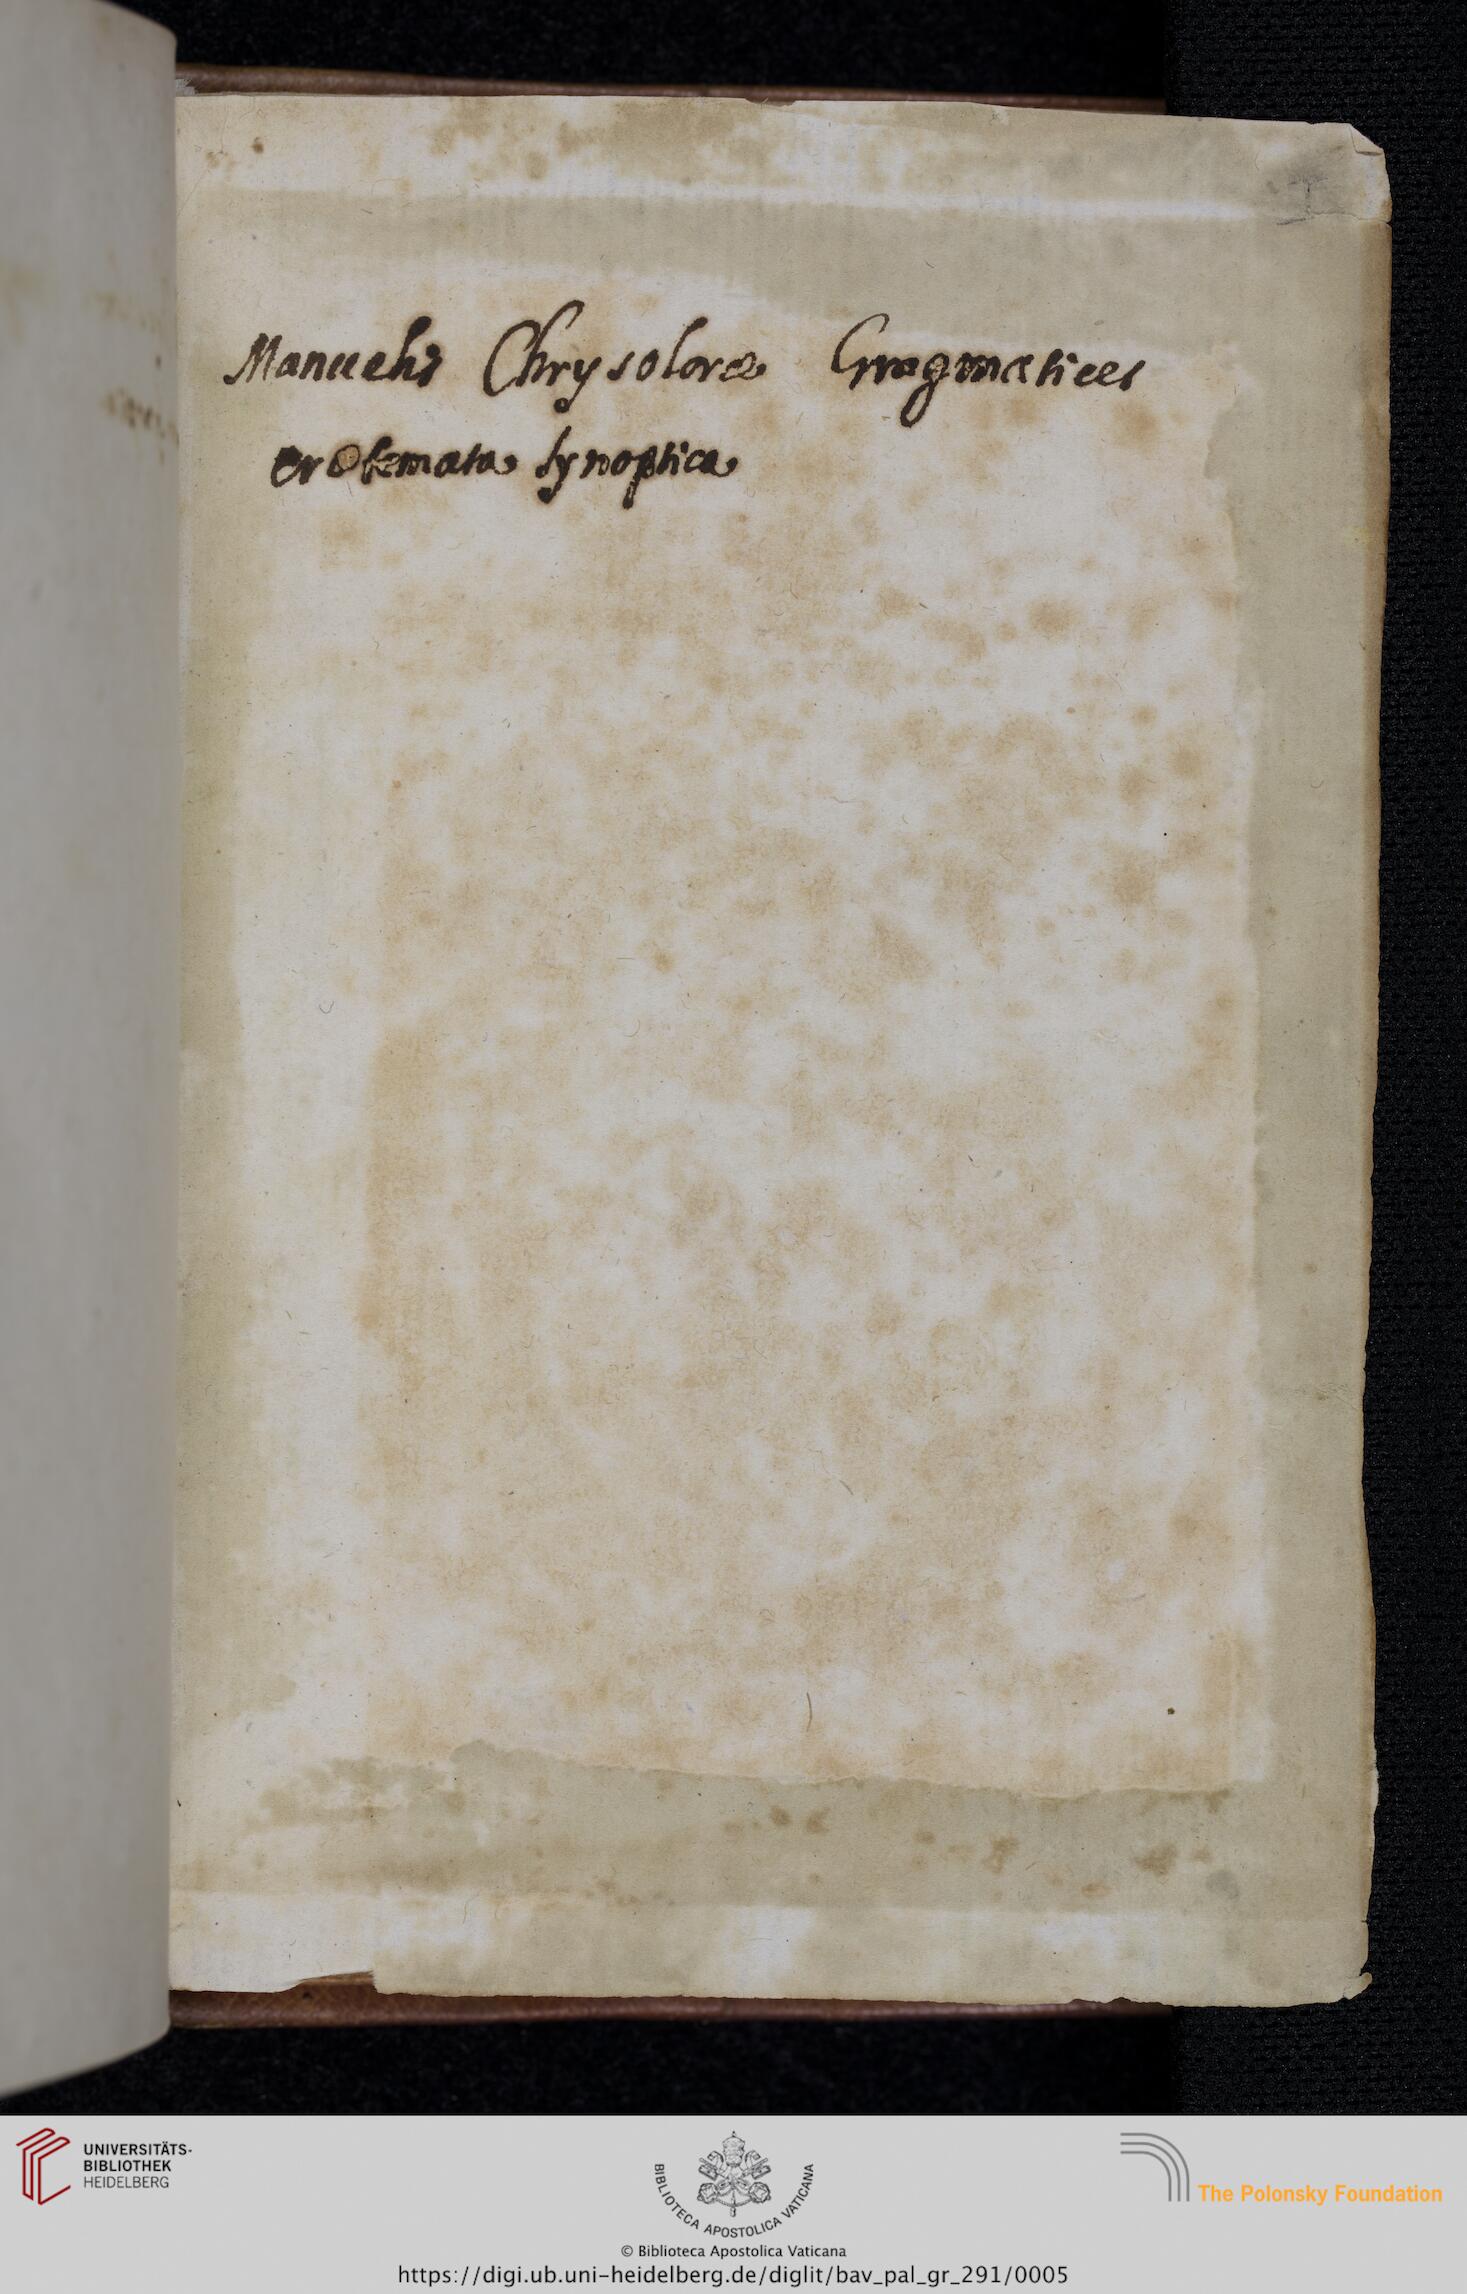 I
Manuelis Chrysoloræ Gragmatices
erotemata synoptica
UNIVERSITÄTS-
BIBLIOTHEK
HEIDELBERG
BIBLIOTECA APOSTOLICA VATICANA
The Polonsky Foundation
© Biblioteca Apostolica Vaticana
https://digi.ub.uni-heidelberg.de/diglit/bav_pal_gr_291/0005